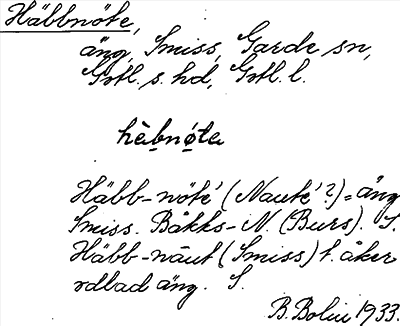 Häbbnöte,
äng, Smiss, Garde sn,
Gotl. s. hd, Gotl. l.
hèbnøta
Häbb-nöte' (Naute'?) = äng
Smiss. Båkks-N. (Burs). S.
Häbb-näut (Smiss) f. åker
odlad äng. S.
B. Bolin 1933.